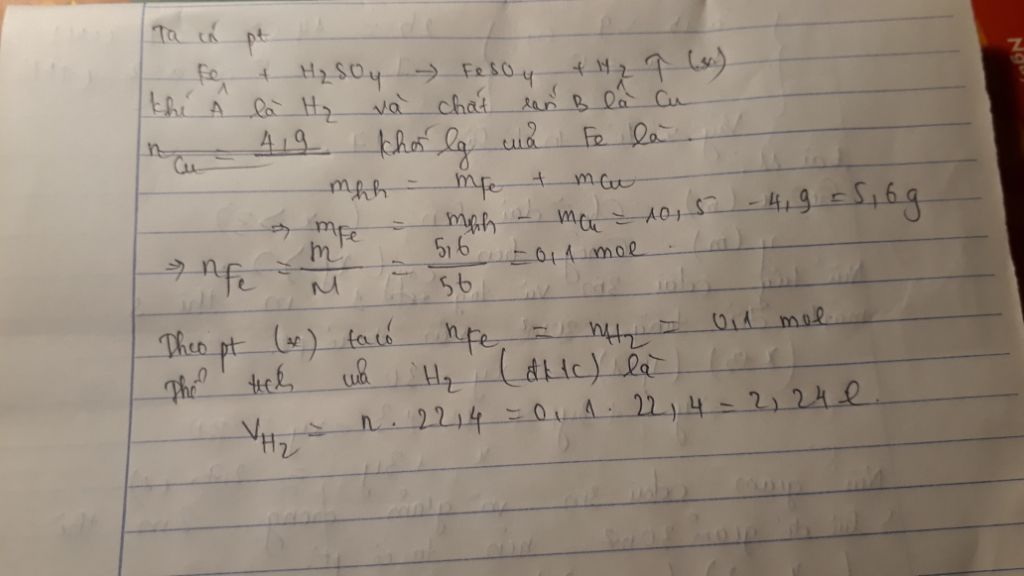 Ta có pt
Fe + H2SO4 → FeSO4 + H2 ↑ (*)
Khí A là H2 và chất rắn B là Cu
nCu = 4,9 khối lg của Fe là
mhh = mFe + mCu
⇒ mFe = mhh - mCu = 10,5 - 4,9 = 5,6g
⇒ nFe = m/M = 5,6/56 = 0,1 mol
Theo pt (*) ta có nFe = nH2 = 0,1 mol
Thể tích của H2 (đktc) là
VH2 = n . 22,4 = 0,1 . 22,4 = 2,24 l.